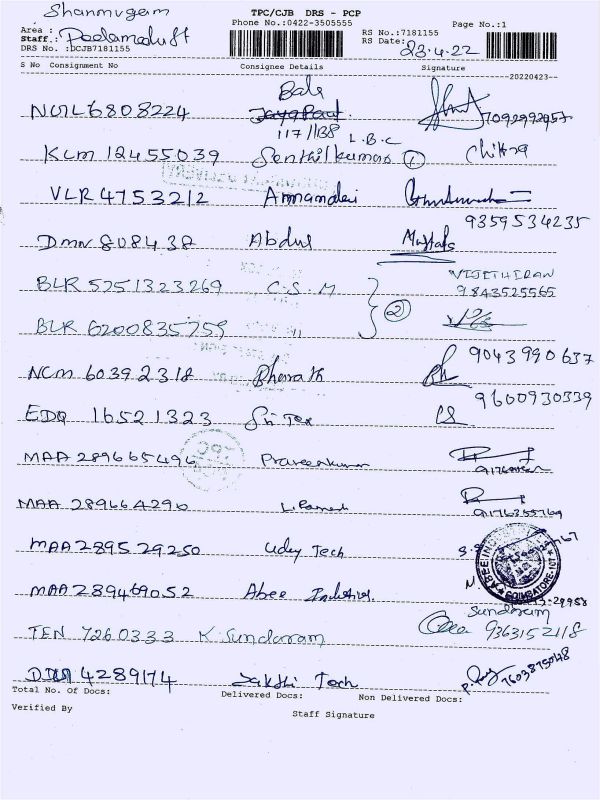 Shanmugam
TPC/CJB DRS - PCP
Phone No.:0422-3505555
Page No.:1
Area :
Staff.:
DRS No. :DCJB7181155
RS No.:7181155
RS Date: 23.4.22
S No Consignment No Consignee Details Signature
--20220423--
Bala
6808224 7092992957
117/1B8
L.B.C
KLM 12455039 Senthilkumar 1 Chitra
VLR 4753212 Annamalai
9359534235
DMN 808438 Abdul
BLR 5251323269 C.S.M
9843525565
BLR 6200835759 11 2
NCM 60392318 Bharath 9043990637
EDQ 16521323 Sri Tex 9600930339
MAA 289665496 Praveenkumar
MAA 289664290 L.Ramesh 9176355769
MAA 289529250 Uday Tech
MAA 289469052 Abee Industries.
ABEE COIMBATORE
Sundaram
TEN 7260333 K.Sundaram 9363152118
4289174 Sakthi Tech 7603875048
Total No. Of Docs: Delivered Docs: Non Delivered Docs:
Verified By
Staff Signature